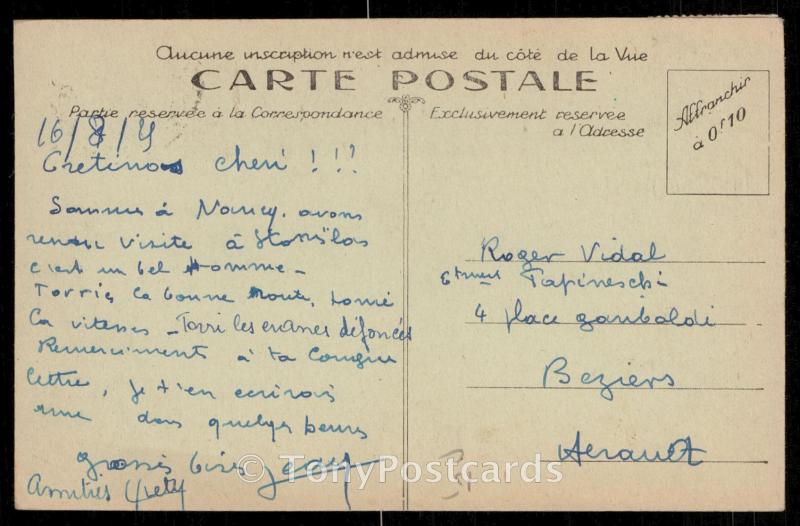 Aucune inscription n'est admise du côté de la Vue
CARTE POSTALE
Partie réservée à la Correspondance
Exclusivement réservée
à l'Adresse
Affranchir
à 0f10
16/8/
Cretinos cheri ! ! !
Sommes à Nancy. avons
rendu visite à Stanislas
c'est un bel Homme -
la bonne route,
la vitesse - les cranes défoncés
Remerciment à ta longue
lettre, je t'en ecrirais
une dans quelques heures
grosses bises
Amitiés
Roger Vidal
4 place garibaldi
Beziers
Herault
© TonyPostcards